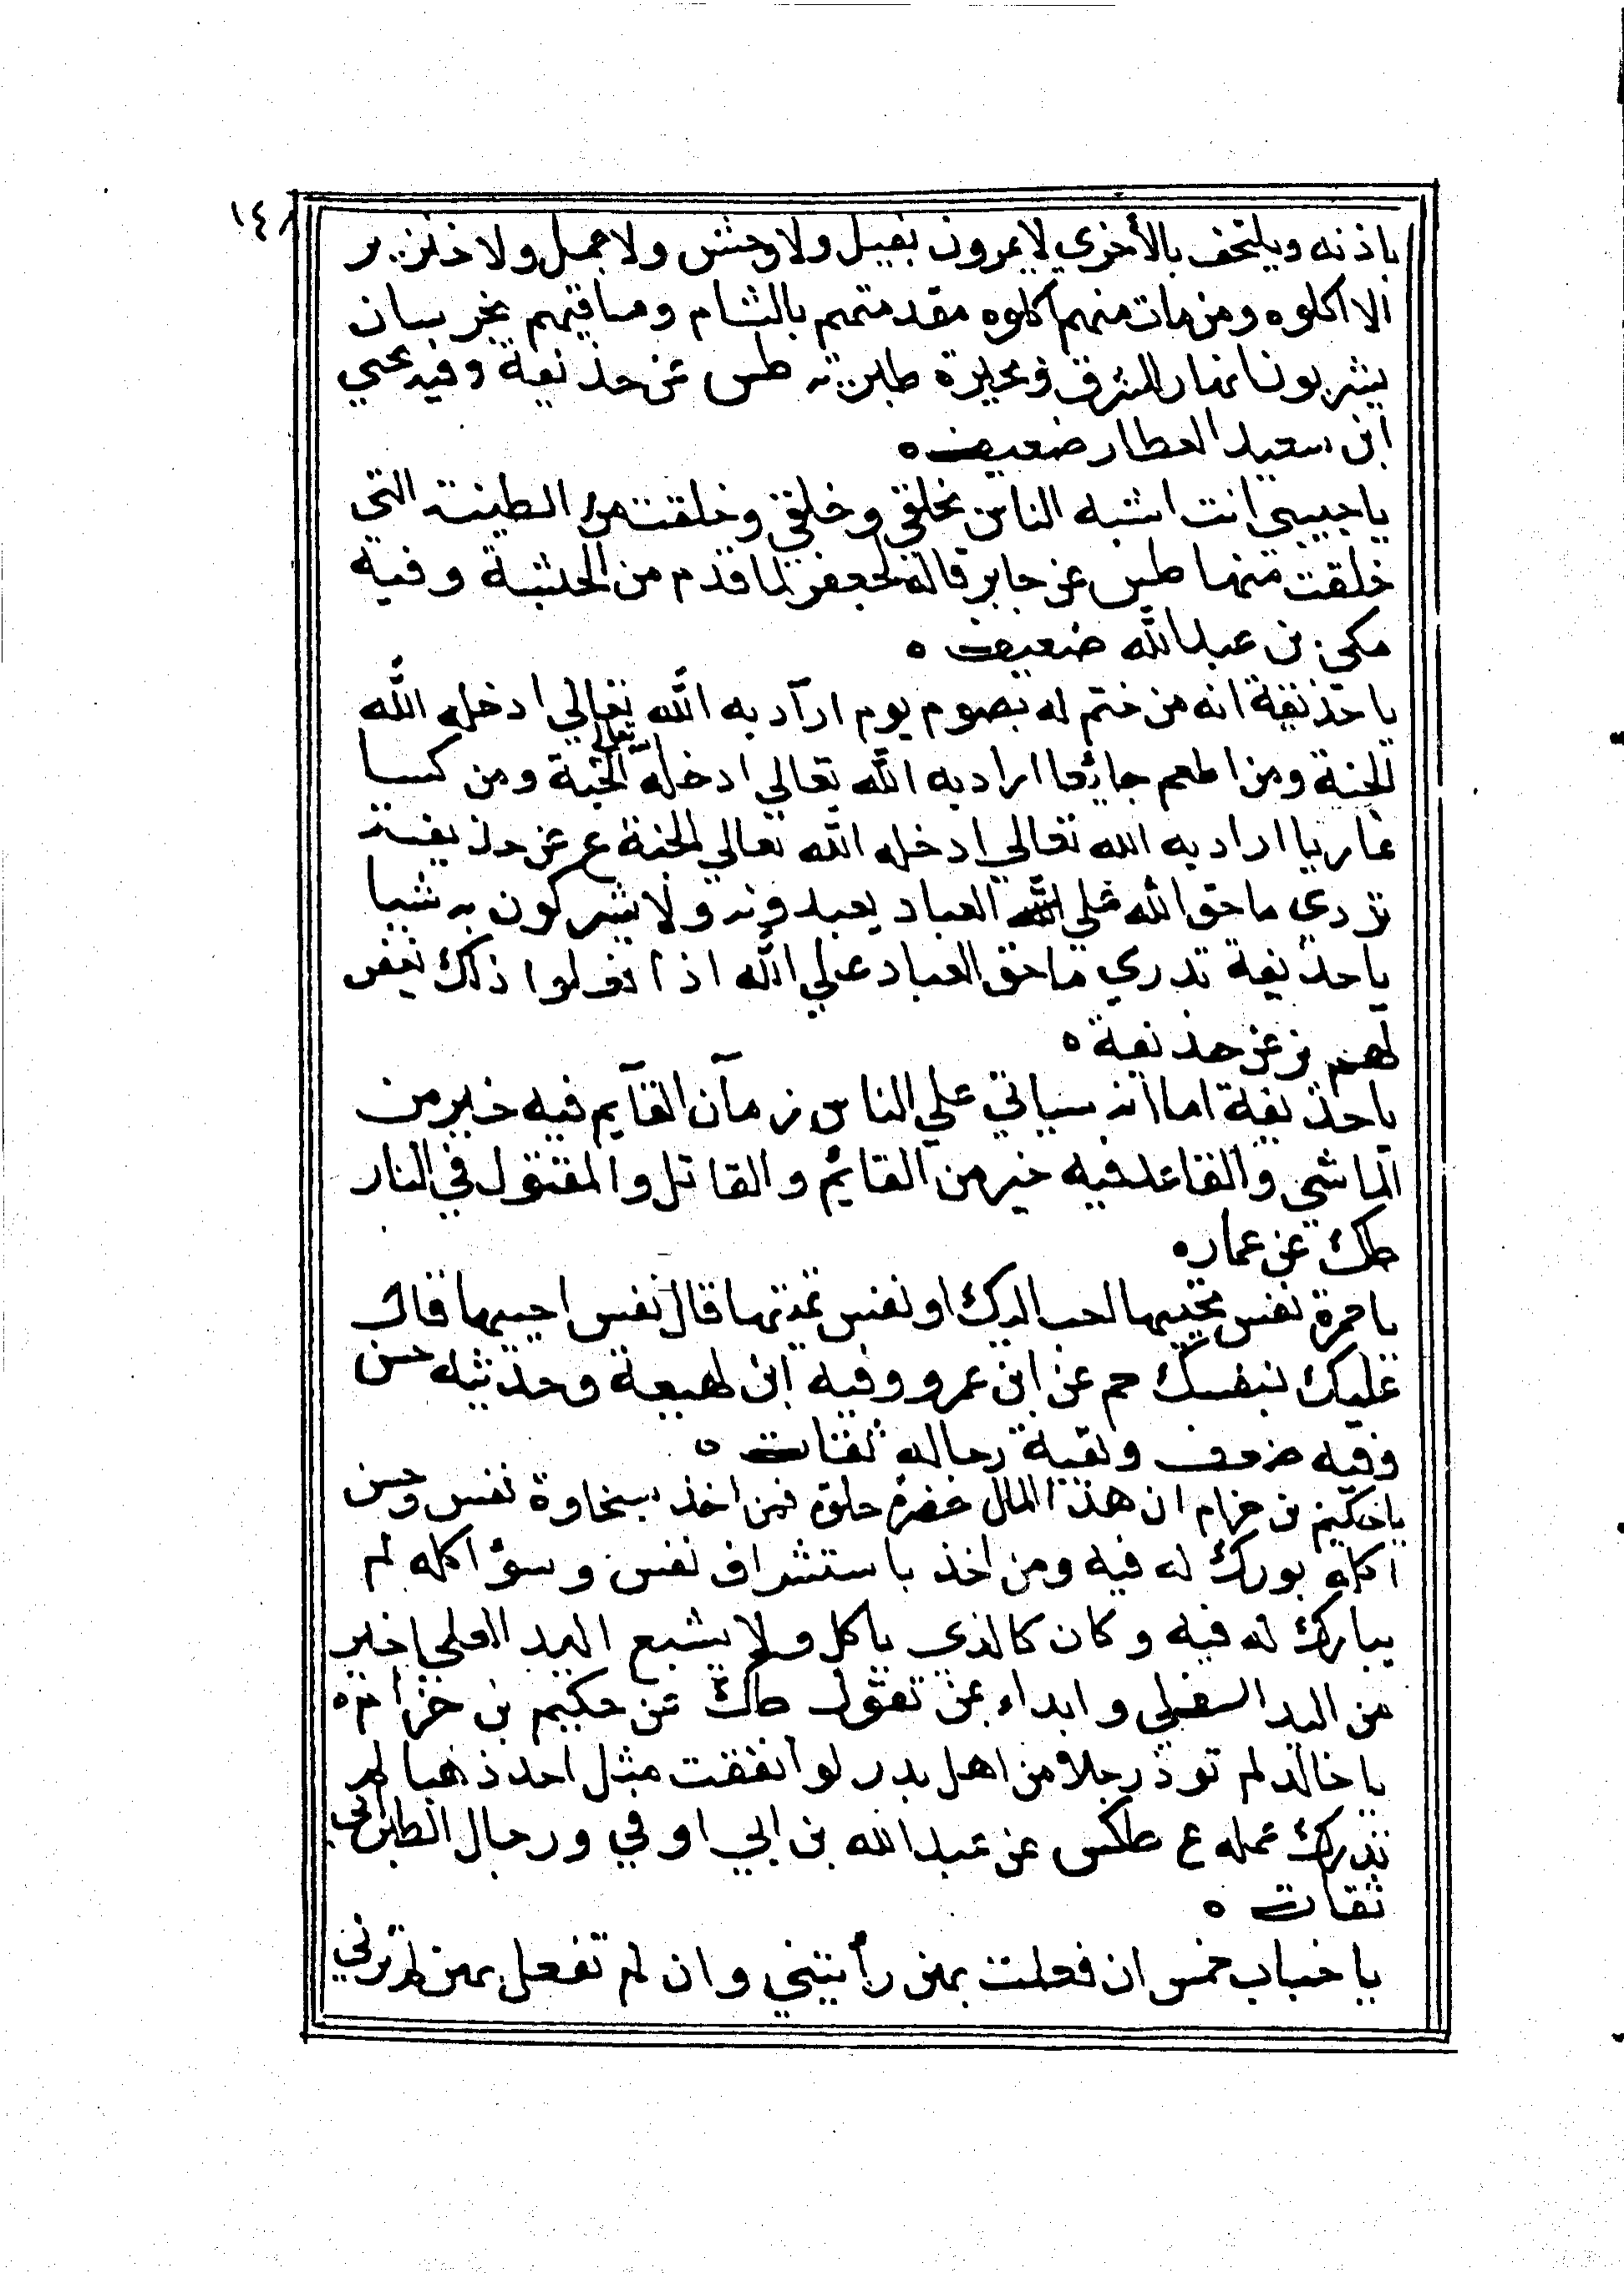 ١٤٨
باذنه ويلتحف بالأخري لا يمرون بفيل ولا وحش ولا جمل ولا خنزير
الا اكلوه ومن مات منهم اكلوه مقدمتهم بالشام وساقيهم بخرسان
يشربون انهار المشرق وبحيرة طبرية طس عن حذيفة وفيه يحيي
ابن سعيد العطار ضعيف ٥
يا حبيبي انت اشبه الناس بخلقي وخلقي وخلقت من الطينة التي
خلقت منها طس عن جابر قاله لجعفر لما قدم من الحبشة وفيه
مكي بن عبد الله ضعيف ٥
يا حذيفة انه من ختم له بصوم يوم اراد به الله تعالي ادخله الله
الجنة ومن اطعم جائعا اراد به الله تعالي ادخله الله تعالي الجنة ومن كسا
عاريا اراد به الله تعالي ادخله الله تعالي الجنة ع عن حذيفة
تدري ما حق الله علي الله العباد يعبدونه ولا يشركون به شيا
يا حذيفة تدري ما حق العباد علي الله اذا فعلوا ذلك يغفر
لهم بز عن حذيفة ٥
يا حذيفة اما انه سياتي علي الناس زمان القايم فيه خير من
الماشي والقاعد فيه خير من القائم والقاتل والمقتول في النار
طك عن عمار ٥
يا حمزة نفس تحييها احب اليك او نفس تميتها قال نفس احييها قال
عليك بنفسك حم عن ابن عمرو وفيه ابن لهيعة وحديثه حسن
وفيه ضعف وبقية رجاله ثقات ٥
يا حكيم بن حزام ان هذا المال خضرة حلوة فمن اخذ بسخاوة نفس وحسن
اكله بورك له فيه ومن اخذ باستشراف نفس وسؤ اكله لم
يبارك له فيه وكان كالذي ياكل ولا يشبع اليد العليا خير
من اليد السفلي وابداء بمن تعول طك عن حكيم بن حزام ٥
يا خالد لم توذ رجلا من اهل بدر لو انفقت مثل احد ذهبا لم
تدرك عمله ع طكس عن عبد الله بن ابي اوفي ورجال الطبراني
ثقات ٥
يا خباب خمس ان فعلت بهن رأيتني وان لم تفعل بهن لم ترني